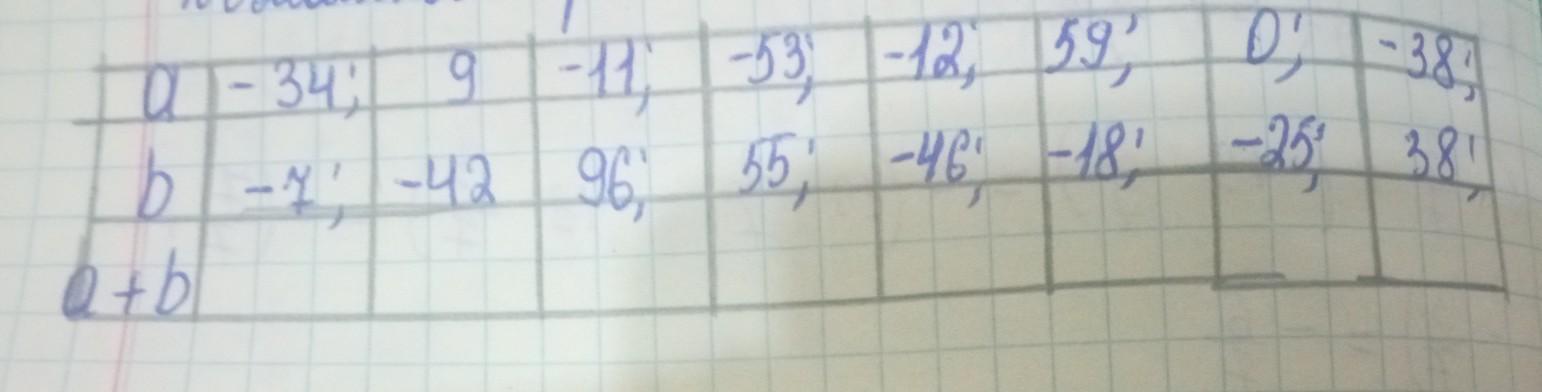 a -34; 9 -11; -53; -12; 59; 0; -38;
b -7; -42 96; 55; -46; -18; -25; 38;
a+b